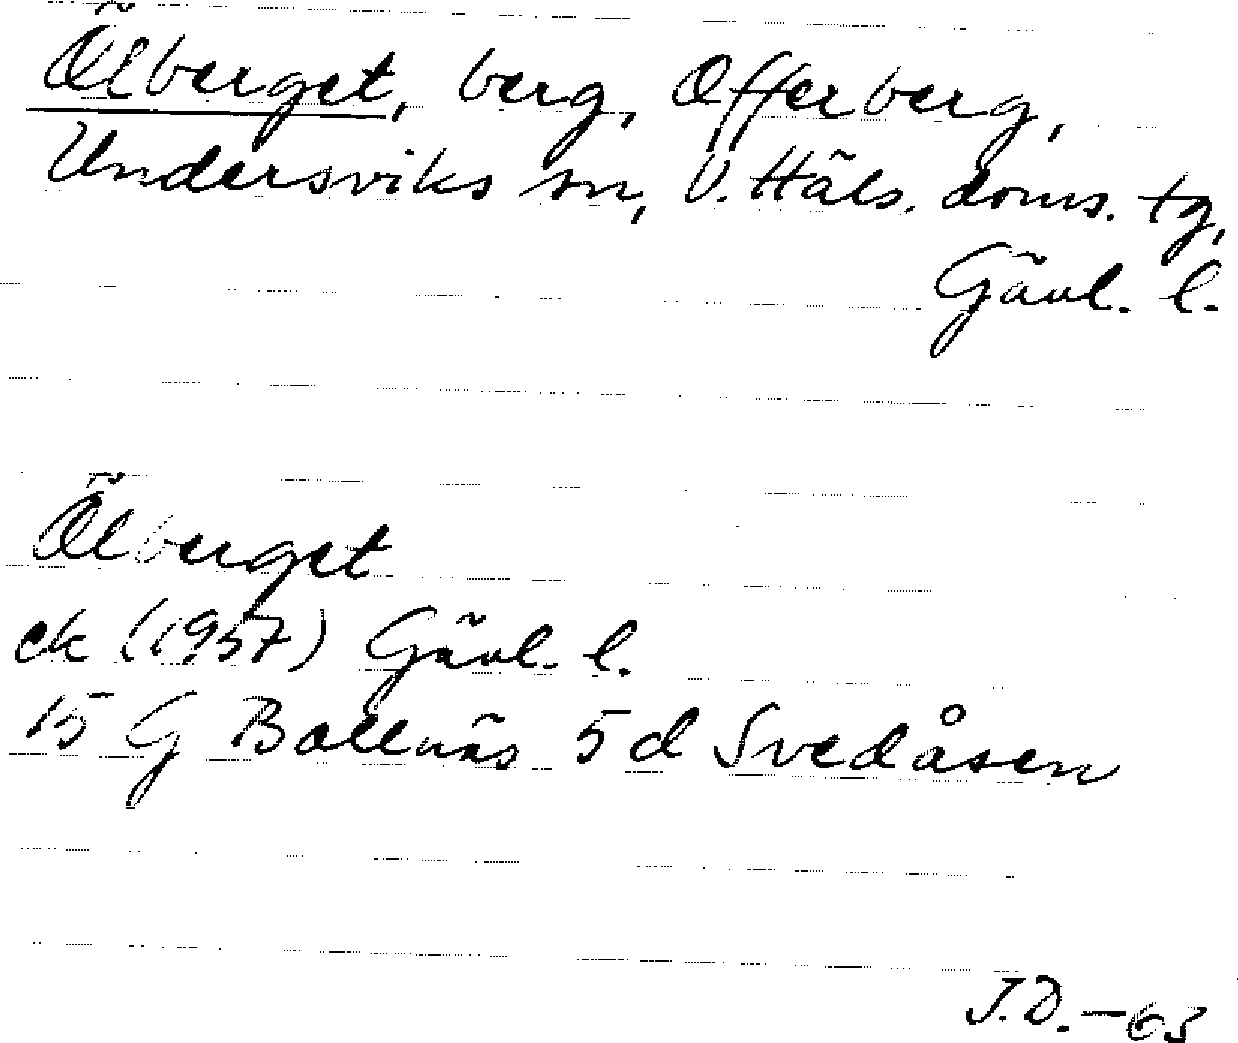 Ölberget, berg, Offerberg,
Undersviks sn, V. Häls. doms. tg,
Gävl. l.
Ölberget
ek (1957) Gävl. l.
15 G Bollnäs 5 d Svedåsen
J.D.-63